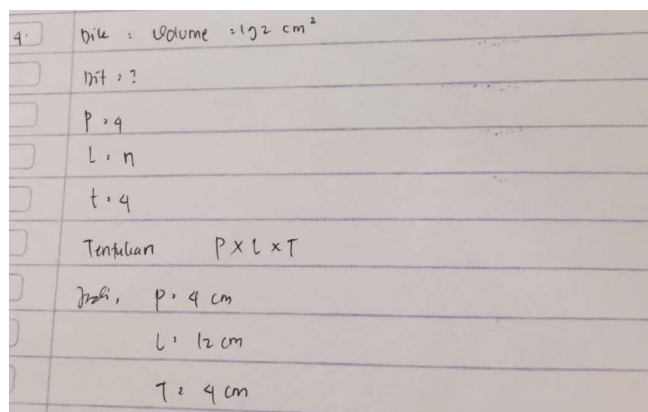 4. Dik : Volume = 192 cm²
Dit = ?
P = 4
L = n
t = 4
Tentukan P x L x T
Jadi, P = 4 cm
L = 12 cm
T = 4 cm